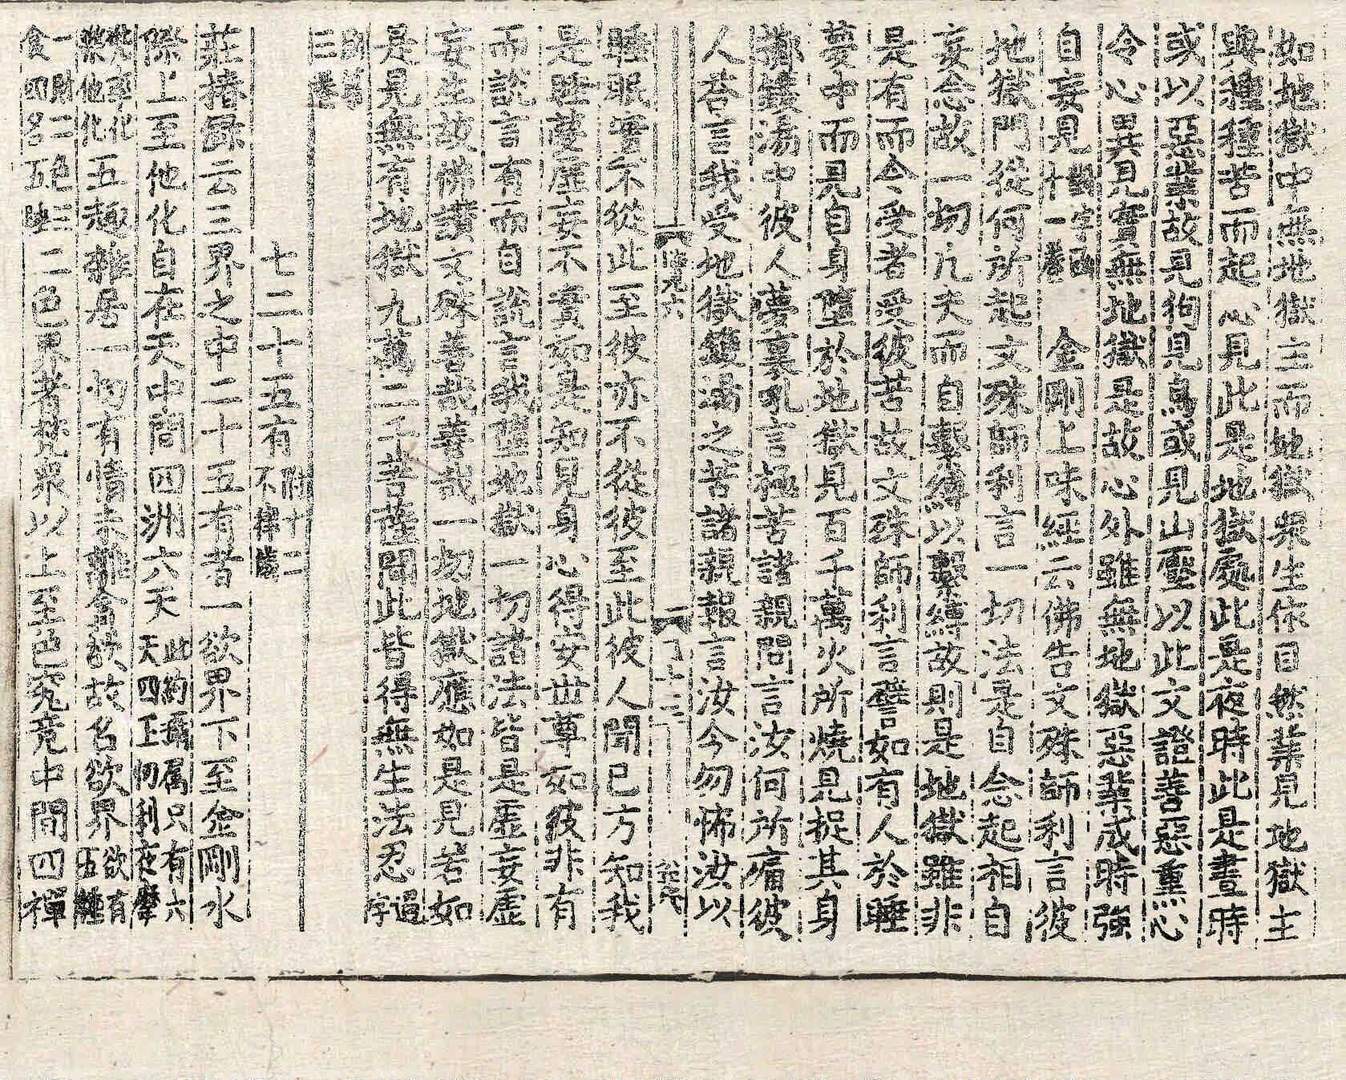 如地獄中無地獄主而地獄衆生依自然業見地獄主
與種種苦而起心見此是地獄處此是夜時此是晝時
或以惡業故見狗見烏或見山壓以此文證善惡熏心
令心異見實無地獄是故心外雖無地獄惡業成時強
自妄見
十一卷
金剛上味經云佛告文殊師利言彼
地獄門從何所起文殊師利言一切法是自念起相自
妄念故一切凡夫而自繫縛以繫縛故則是地獄雖非
是有而令受者受彼苦故文殊師利言譬如有人於睡
夢中而見自身墮於地獄見百千萬火所燒見捉其身
擲鑊湯中彼人夢裏乳言極苦諸親問言汝何所痛彼
人荅言我受地獄鑊湯之苦諸親報言汝今勿怖汝以
睡眠實不從此至彼亦不從彼至此彼人聞已方知我
是睡夢虛妄不實如是知見身心得安世尊如彼非有
而說言有而自說言我墮地獄一切諸法皆是虛妄虛
妄生故佛讚文殊善哉善哉一切地獄應如是見若如
是見無有地獄九萬二千菩薩聞此皆得無生法忍
三卷
七二十五有
附十二
莊椿録云三界之中二十五有者一欲界下至金剛水
際上至他化自在天中間四洲六天
此約攝属只有六
天四王忉利夜摩
兜率化
樂他化
五趣雜居一切有情未離食欲故名欲界
欲有
五種
一財二色三
食四名五睡
二色界者梵衆以上至色究竟中間四禪